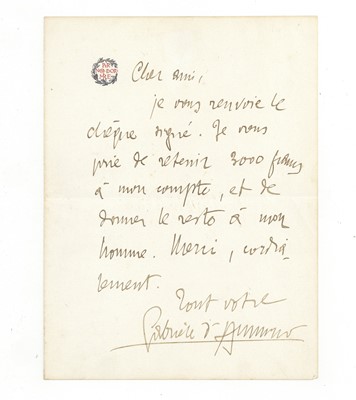 Cher ami,
je vous renvoie le
chèque signé. Je vous
prie de retenir 3000 francs
à mon compte, et de
donner le reste à mon
homme. Merci, cordia-
lement.
Tout votre
Gabriele d'Annunzio